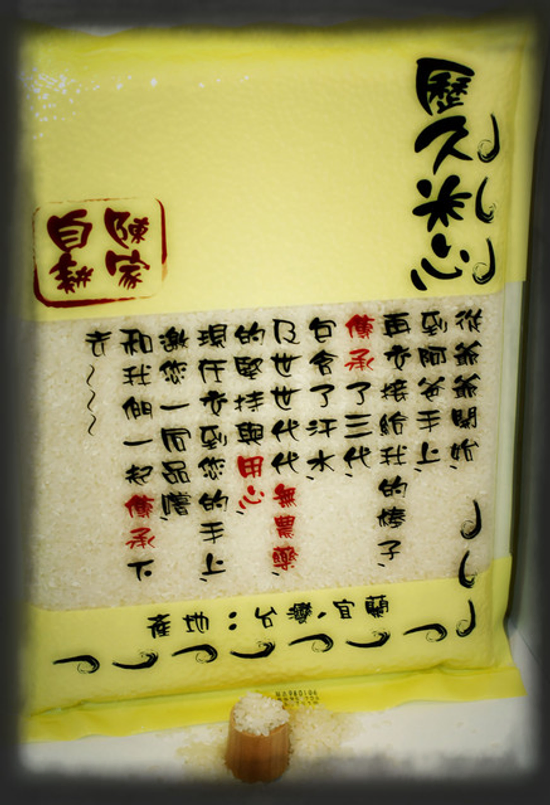 歷久米心
陳家
自耕
從爺爺開始、
到阿爸手上、
再交接給我的棒子、
傳承了三代、
包含了汗水、
及世世代代無農藥、
的堅持與用心、
現在交到您的手上、
邀您一同品嚐、
和我們一起傳承下
去~~~
產地：台灣、宜蘭